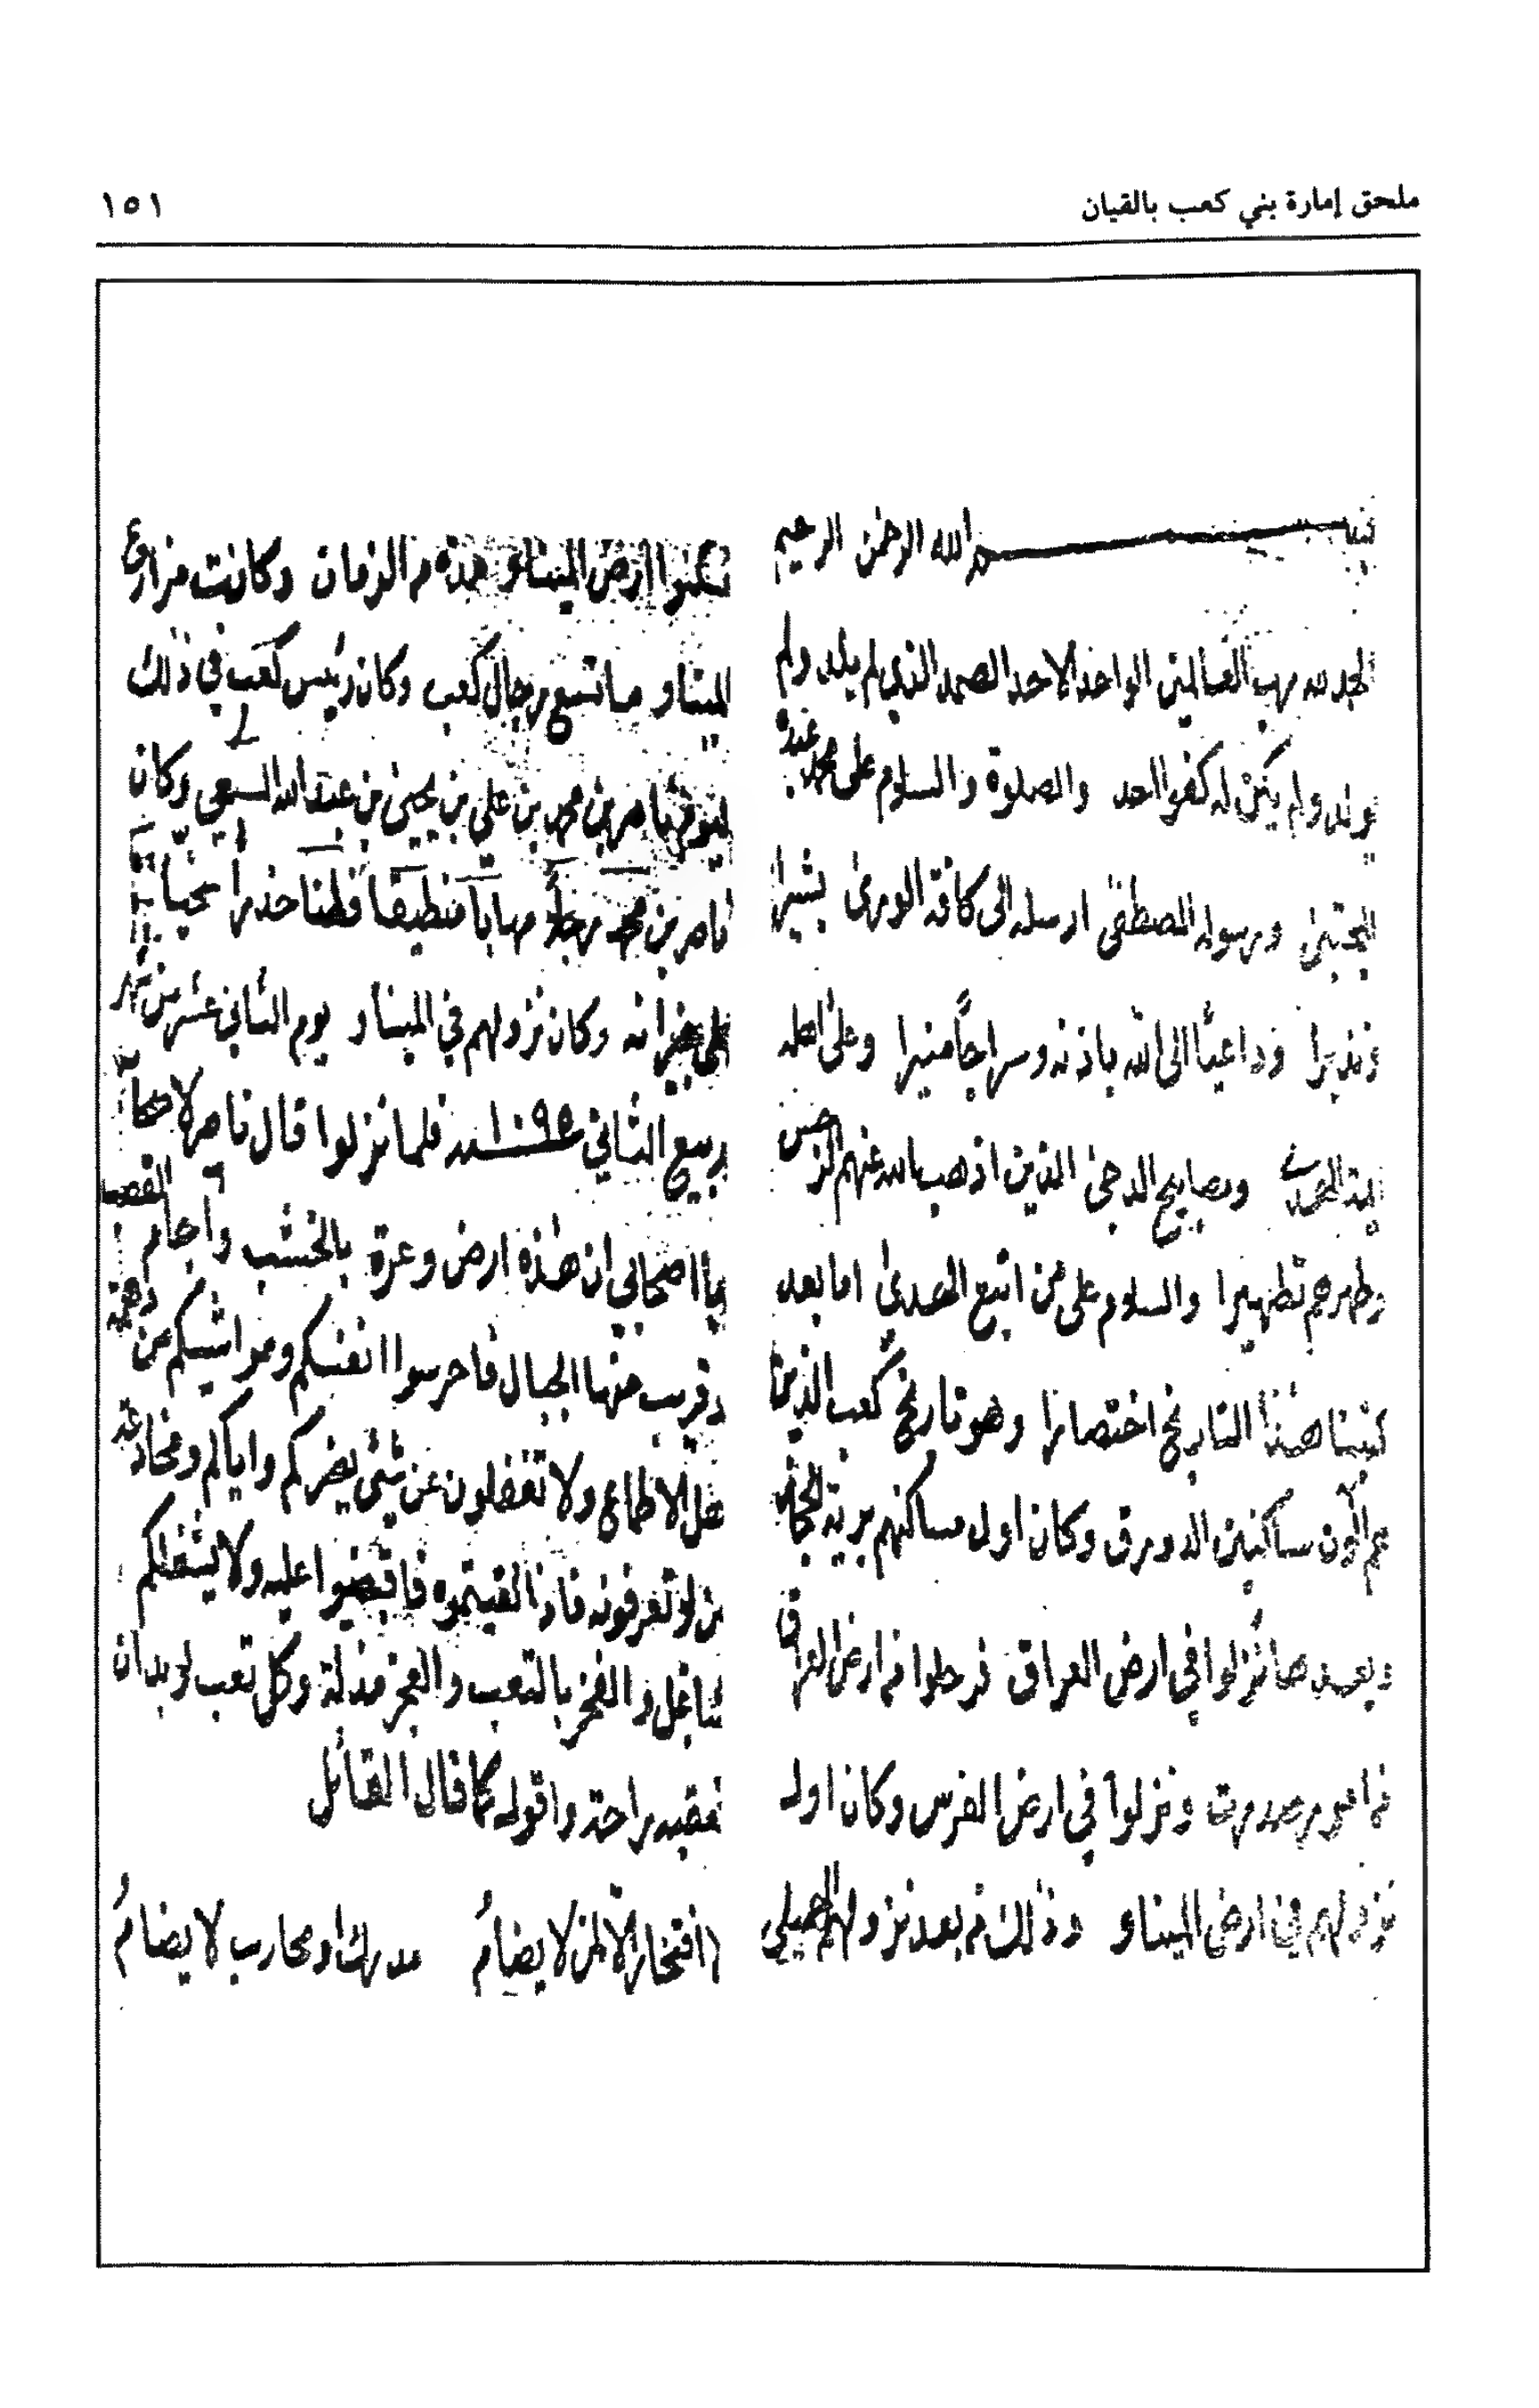 ملحق إمارة بني كعب بالقبان
١٥١
بسم الله الرحمن الرحيم
الحمد لله رب العالمين الواحد الاحد الصمد الذي لم يلد ولم
يولد ولم يكن له كفوا احد والصلوة والسلام على محمد عبده
المجتبى ورسوله المصطفى ارسله الى كافة الورى بشيرا
ونذيرا وداعيًا الى الله باذنه وسراجًا منيرا وعلى اله
ومصابيح الدجى الذين اذهب الله عنهم الرجس
وطهرهم تطهيرا والسلام على من اتبع الهدى اما بعد
كتبنا هذا التاريخ اختصارا وهو تاريخ كعب الذين
هم الآن ساكنين الدورق وكان اول مساكنهم برية الحجاز
وبعدها نزلوا في ارض العراق ثم رحلوا من ارض العراق
ونزلوا في ارض الفرس وكان اول
نزولهم في ارض الميناو وذلك من بعد نزولهم
سكنوا ارض الميناو مدة من الزمان وكانت مزارع
الميناو ما تسع رجال كعب وكان رئيس كعب في ذلك
ناصر بن محمد بن علي بن يحيى بن عبد الله وكان
ناصر بن محمد رجلًا مهابا منطيقا فطنا حذرا
وكان نزولهم في الميناو يوم الثاني عشر من شهر
ربيع الثاني سنة ١٠٩٥ فلما نزلوا قال ناصر لاصحابه
يا اصحابي ان هذه ارض وعرة بالخشب وأجام القصب
وقريب منها الجبال فاحرسوا انفسكم ومواشيكم من
اهل الاطماع ولا تغفلون عن شئ يضركم واياكم ومخادعة
من لا تعرفونه فاذا لقيتموه فاقبضوا عليه ولا يشغلكم
شاغل والفخر بالتعب والعجز مذلة وكل تعب لا بد ان
تعقبه راحة واقول كما قال القائل
لا افتخار الا لمن لا يضامُ مدرك او محارب لا يضامُ